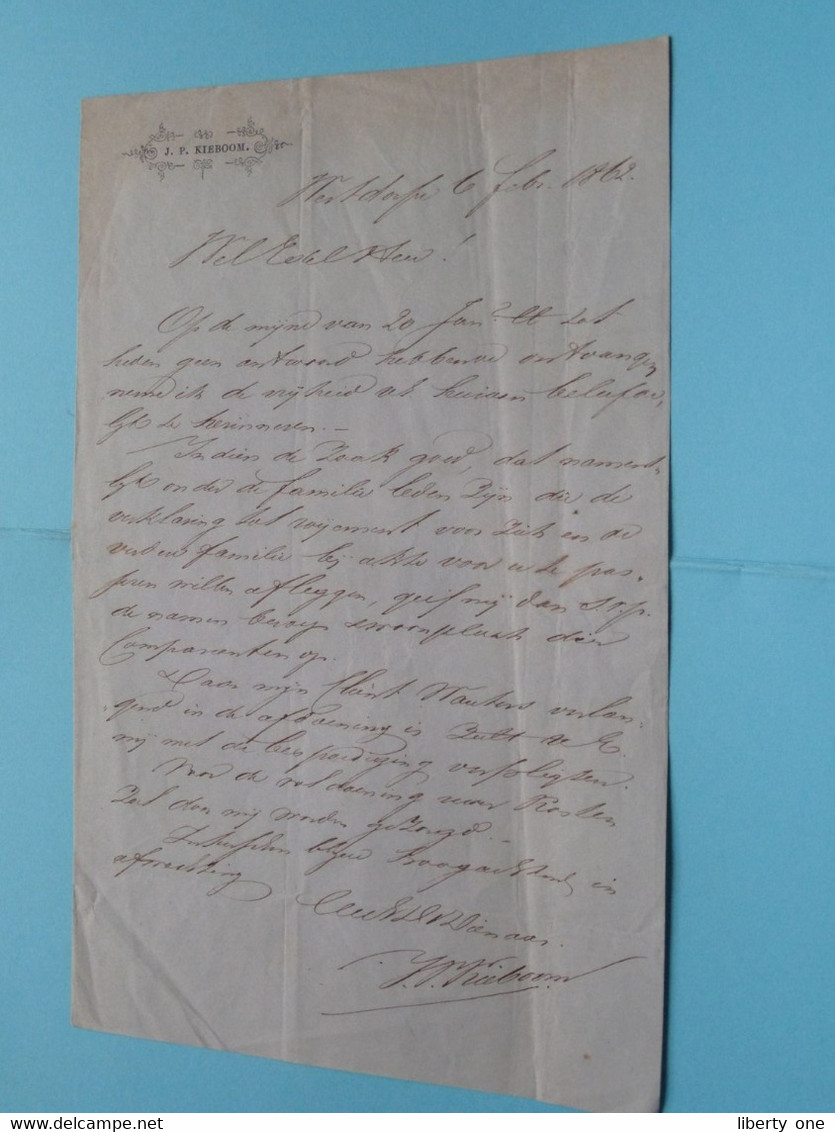 J. P. KIEBOOM.
Westdorpe 6 febr. 1862.
Wel Edel Heer!
Op de mijne van 20 Jan. ll tot
heden geen antwoord hebbende ontvangen
neem ik de vrijheid UE hieraan beleefde-
lijk te herinneren. -
Indien de zaak goed, dat nament-
lijk onder de familie leden zijn die de
verklaring tot voor zich en de
verdere familie bij akte voor u te pas-
seren willen afleggen, geef mij dan s.v.p.
de namen beroep woonplaats dier
Comparanten op.
Daar mijn Client Wauters verlan-
gend in de afdoening is zult UE
mij met de bespoediging verpligten.
Voor de voldoening uwer Kosten
zal door mij worden gezorgd. -
Intusschen blijve hoogachtend in
afwachting
UEd Dienaar.
J.P. Kieboom
liberty_one